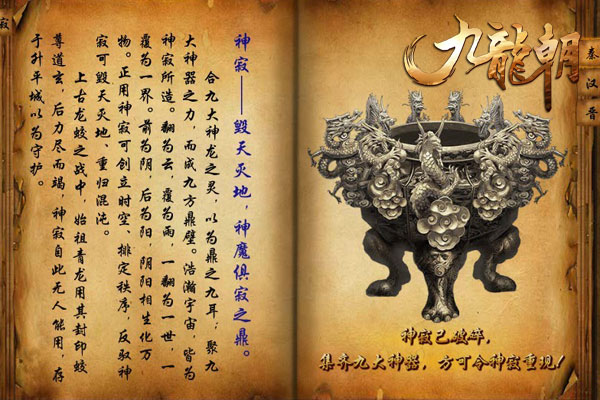 寂
神寂——毁天灭地，神魔俱寂之鼎。
合九大神龙之灵，以为鼎之九耳；聚九
大神器之力，而成九方鼎壁。浩瀚宇宙，皆为
神寂所造。翻为云，覆为雨，一翻为一世，一
覆为一界。前为阴，后为阳，阴阳相生化万
物。正用神寂可创立时空、排定秩序，反驭神
寂可毁天灭地、重归混沌。
上古龙蛟之战中，始祖青龙用其封印蛟
尊道玄，后力尽而竭，神寂自此无人能用，存
于升平城以为守护。
九龍朝
秦汉晋
神寂已破碎，
集齐九大神器，方可令神寂重现！